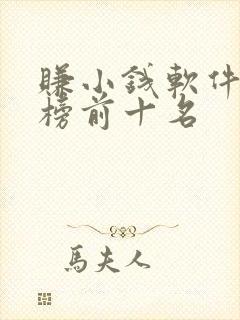 賺小錢軟件
榜前十名
馬夫人